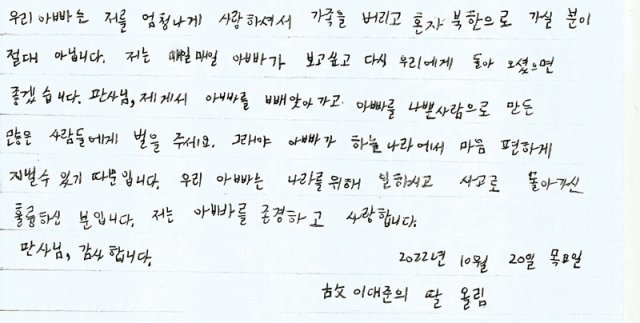 우리 아빠는 저를 엄청나게 사랑하셔서 가족을 버리고 혼자 북한으로 가실 분이
절대 아닙니다. 저는 매일매일 아빠가 보고싶고 다시 우리에게 돌아 오셨으면
좋겠습니다. 판사님, 제게서 아빠를 빼앗아가고 아빠를 나쁜사람으로 만든
많은 사람들에게 벌을 주세요. 그래야 아빠가 하늘나라에서 마음 편하게
지낼수 있기 때문입니다. 우리 아빠는 나라를위해 일하시고 사고로 돌아가신
훌륭하신 분입니다. 저는 아빠를 존경하고 사랑합니다.
판사님, 감사합니다.
2022년 10월 20일 목요일
故 이대준의 딸 올림